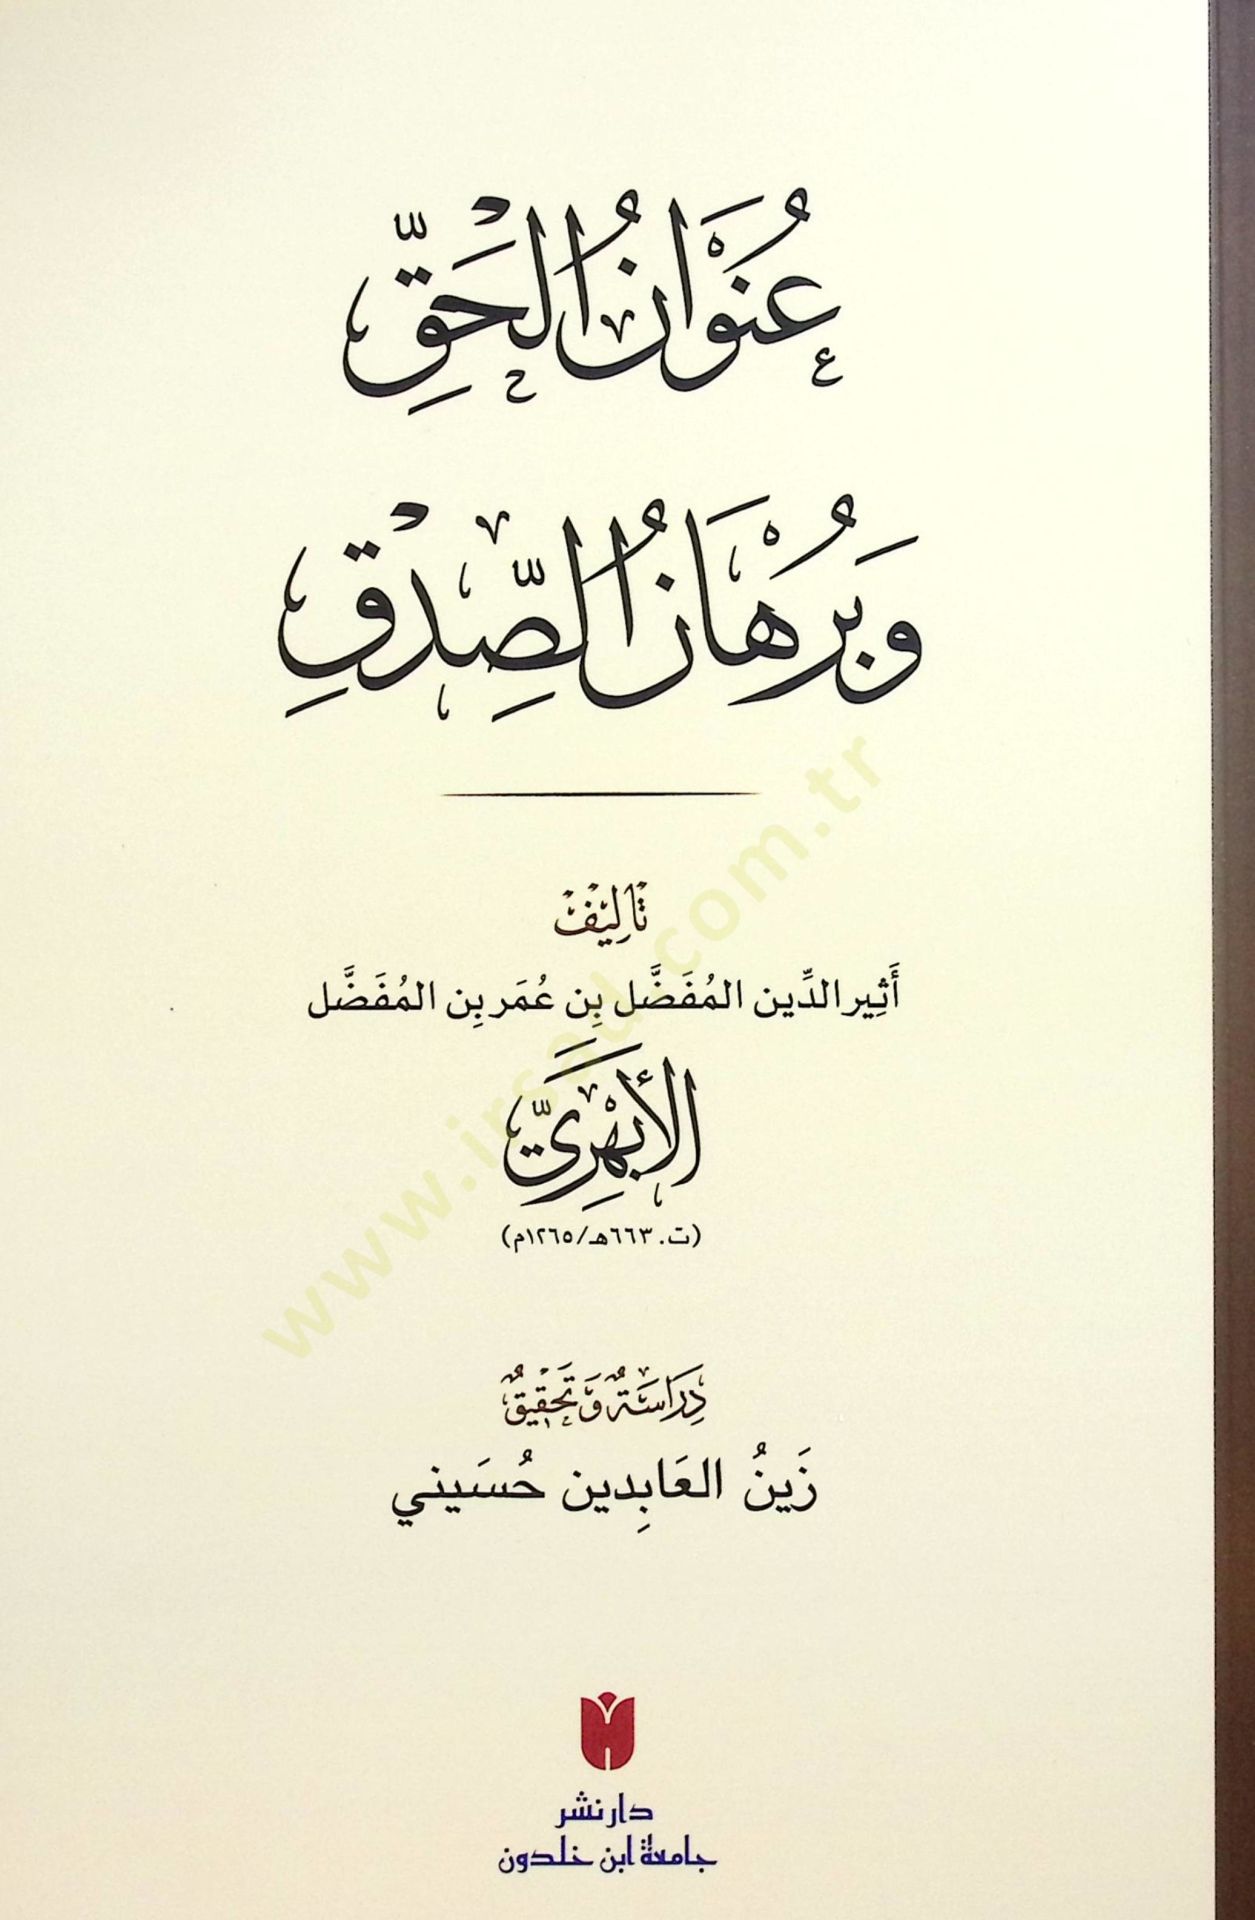 عُنْوَانُ الْحَقِّ
وَبُرْهَانُ الصِّدْقِ
تَأْلِيْفُ
أَثِير الدِّين المُفَضَّل بِن عُمَر بِن المُفَضَّل
الأَبْهَرِيّ
(ت. ٦٦٣هـ/١٢٦٥م)
دِرَاسَةٌ وَتَحْقِيْقٌ
زَينُ العَابِدين حُسَيني
دار نشر
جامعة ابن خلدون
www.irsad.com.tr